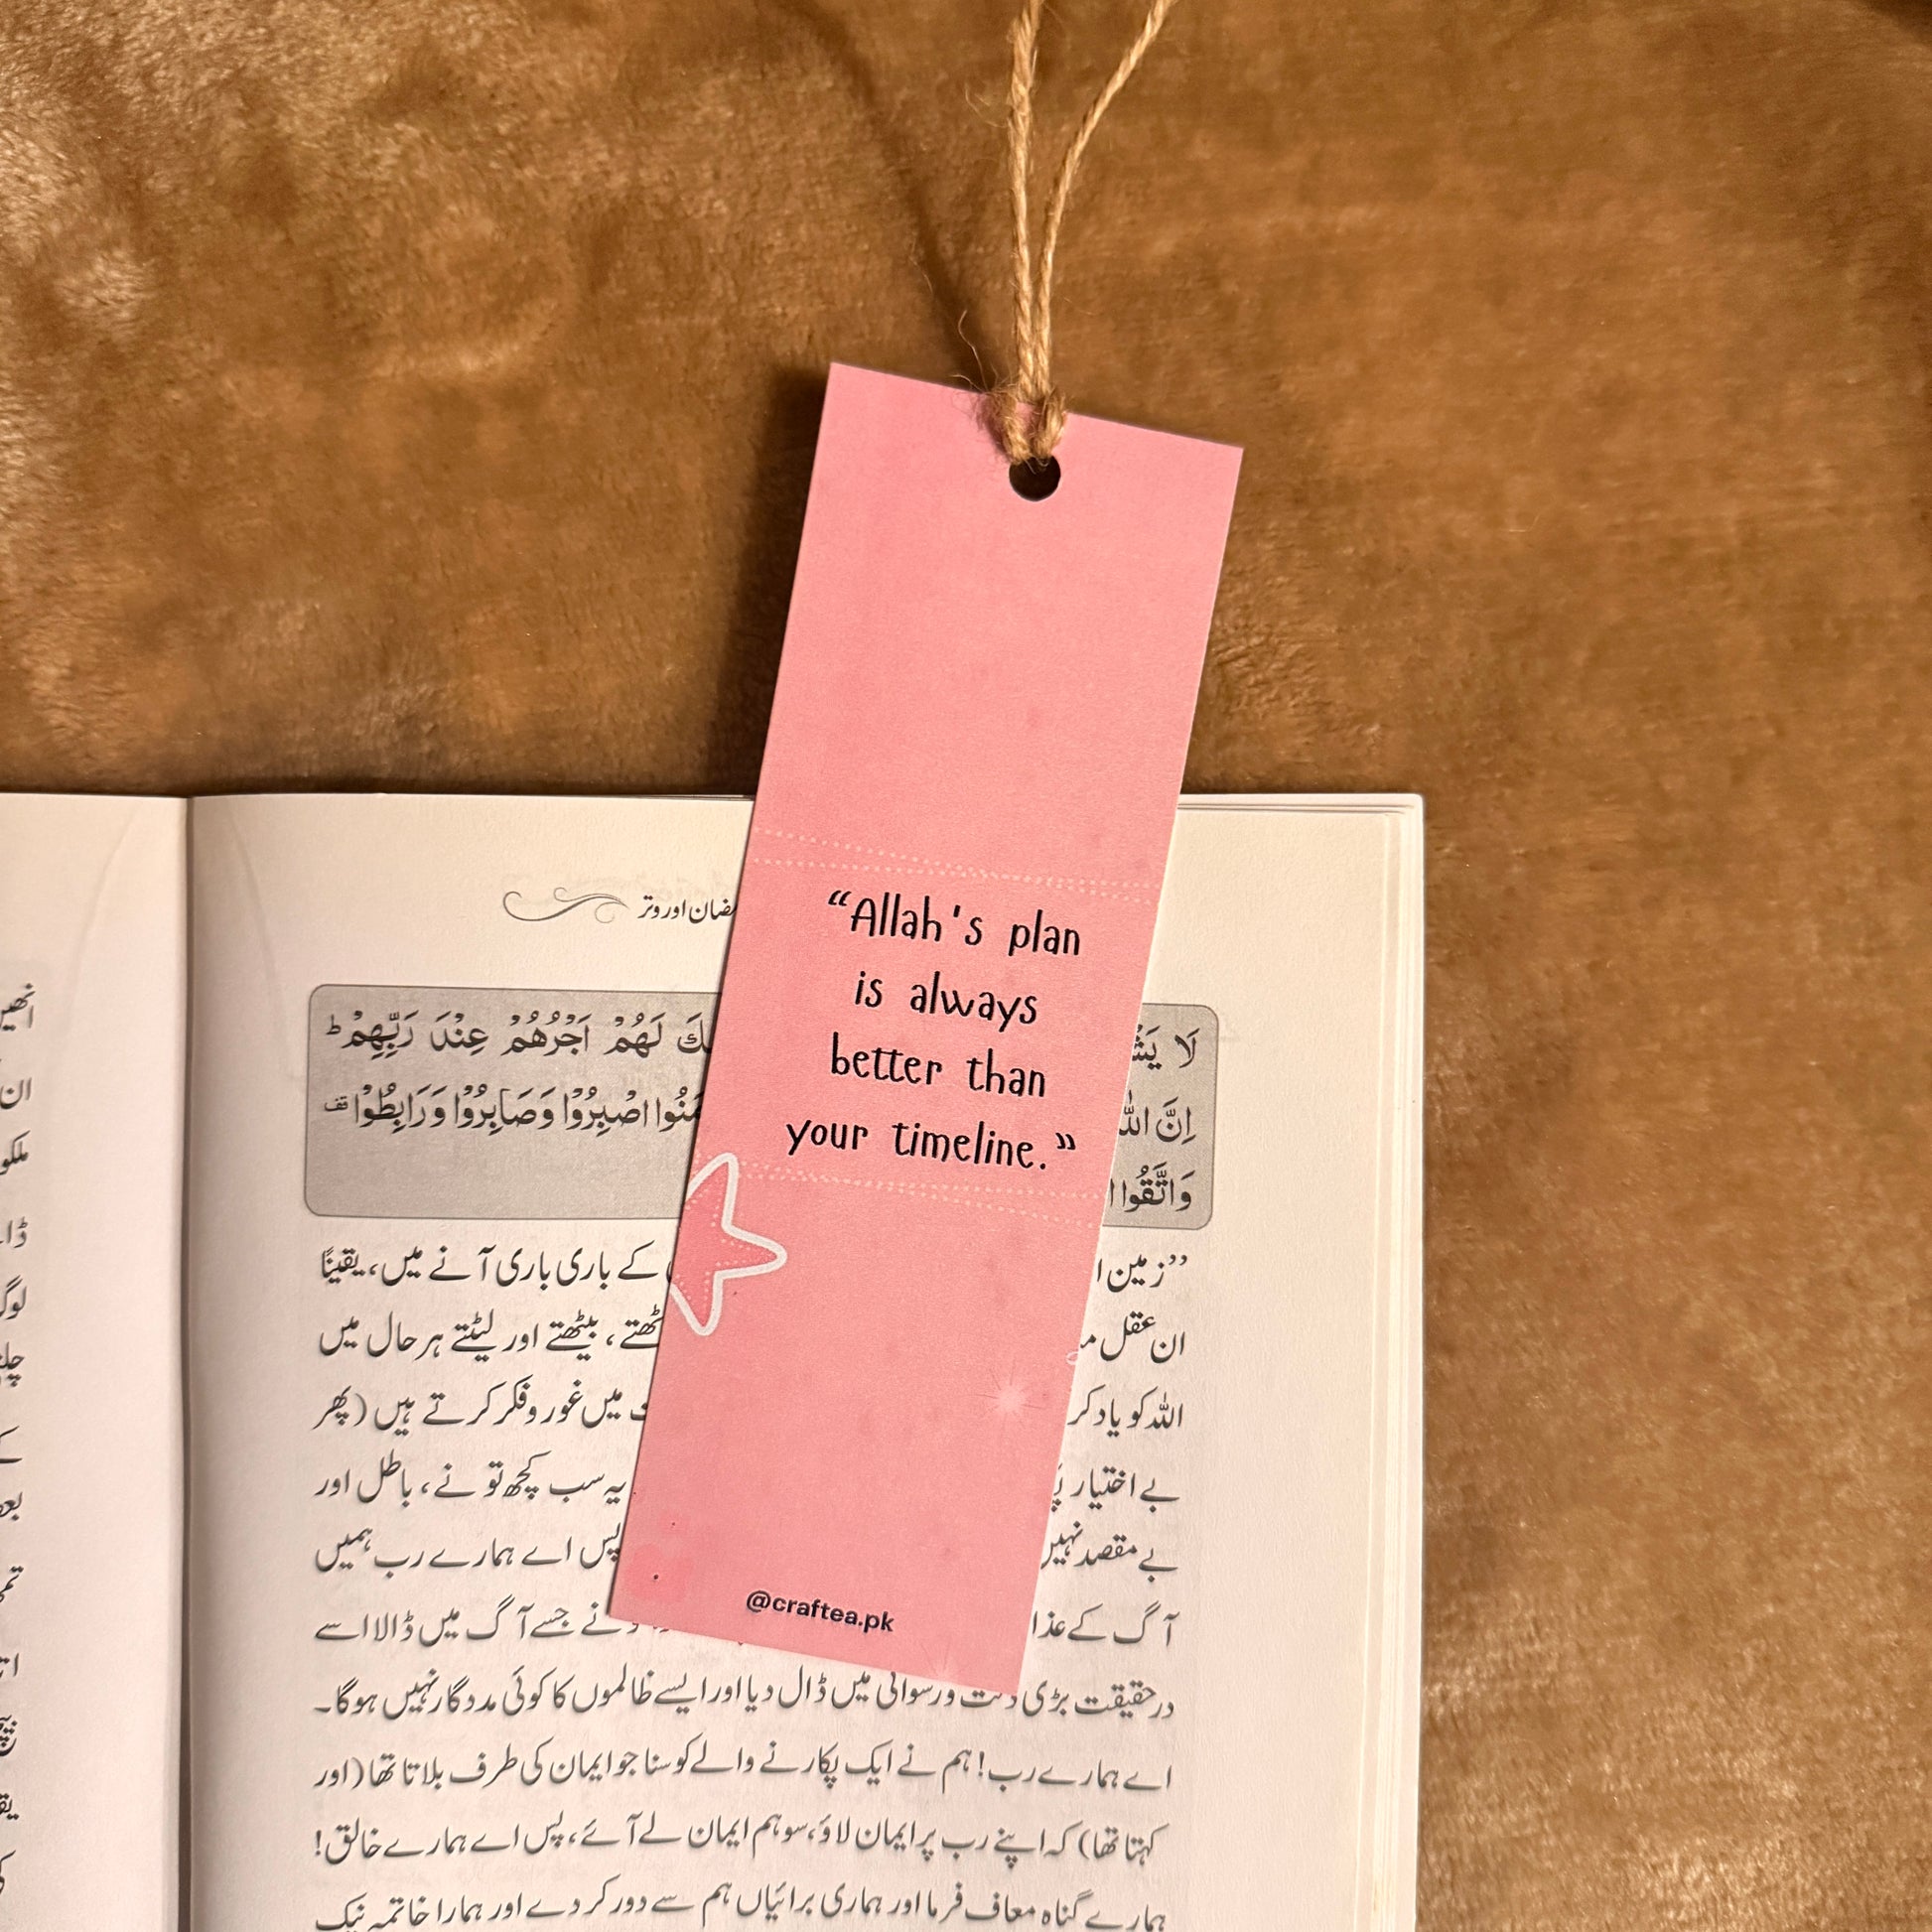 “Allah's plan
is always
better than
your timeline.”
@craftea.pk
اور وتر
لَا لَهُمْ اَجْرُهُمْ عِنْدَ رَبِّهِمْ ؕ
اِنَّ اصْبِرُوْا وَصَابِرُوْا وَرَابِطُوْا قف
وَاتَّقُوا
”زمین کے باری باری آنے میں، یقینًا
ان عقل بیٹھتے اور لیٹتے ہر حال میں
اللہ کو یاد کر میں غور و فکر کرتے ہیں (پھر
بے اختیار یہ سب کچھ تو نے، باطل اور
بے مقصد نہیں پس اے ہمارے رب ہمیں
آگ کے نے جسے آگ میں ڈالا اسے
درحقیقت بڑی ورسوائی میں ڈال دیا اور ایسے ظالموں کا کوئی مددگار نہیں ہوگا۔
اے ہمارے رب! ہم نے ایک پکارنے والے کو سنا جو ایمان کی طرف بلاتا تھا (اور
کہتا تھا) کہ اپنے رب پر ایمان لاؤ، سو ہم ایمان لے آئے، پس اے ہمارے خالق!
ہمارے گناہ معاف فرما اور ہماری برائیاں ہم سے دور کر دے اور ہمارا خاتمہ نیک